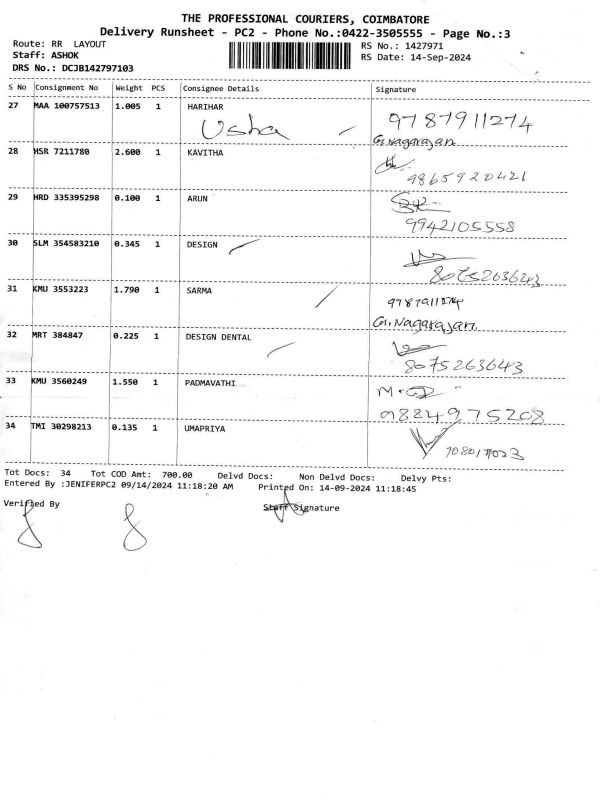 THE PROFESSIONAL COURIERS, COIMBATORE
Delivery Runsheet - PC2 - Phone No.:0422-3505555 - Page No.:3
Route: RR LAYOUT RS No.: 1427971
Staff: ASHOK RS Date: 14-Sep-2024
DRS No.: DCJB142797103
S No Consignment No Weight PCS Consignee Details Signature
27 MAA 100757513 1.005 1 HARIHAR 9787911274
Usha G.Nagarajan
28 HSR 7211780 2.600 1 KAVITHA
9865920421
29 HRD 335395298 0.100 1 ARUN
9942105558
30 SLM 354583210 0.345 1 DESIGN
8075263643
31 KMU 3553223 1.790 1 SARMA 9787911274
G.Nagarajan
32 MRT 384847 0.225 1 DESIGN DENTAL
8075263643
33 KMU 3560249 1.550 1 PADMAVATHI
98824975208
34 TMI 30298213 0.135 1 UMAPRIYA
Tot Docs: 34 Tot COD Amt: 700.00 Delvd Docs: Non Delvd Docs: Delvy Pts:
Entered By :JENIFERPC2 09/14/2024 11:18:20 AM Printed On: 14-09-2024 11:18:45
Verified By Staff Signature